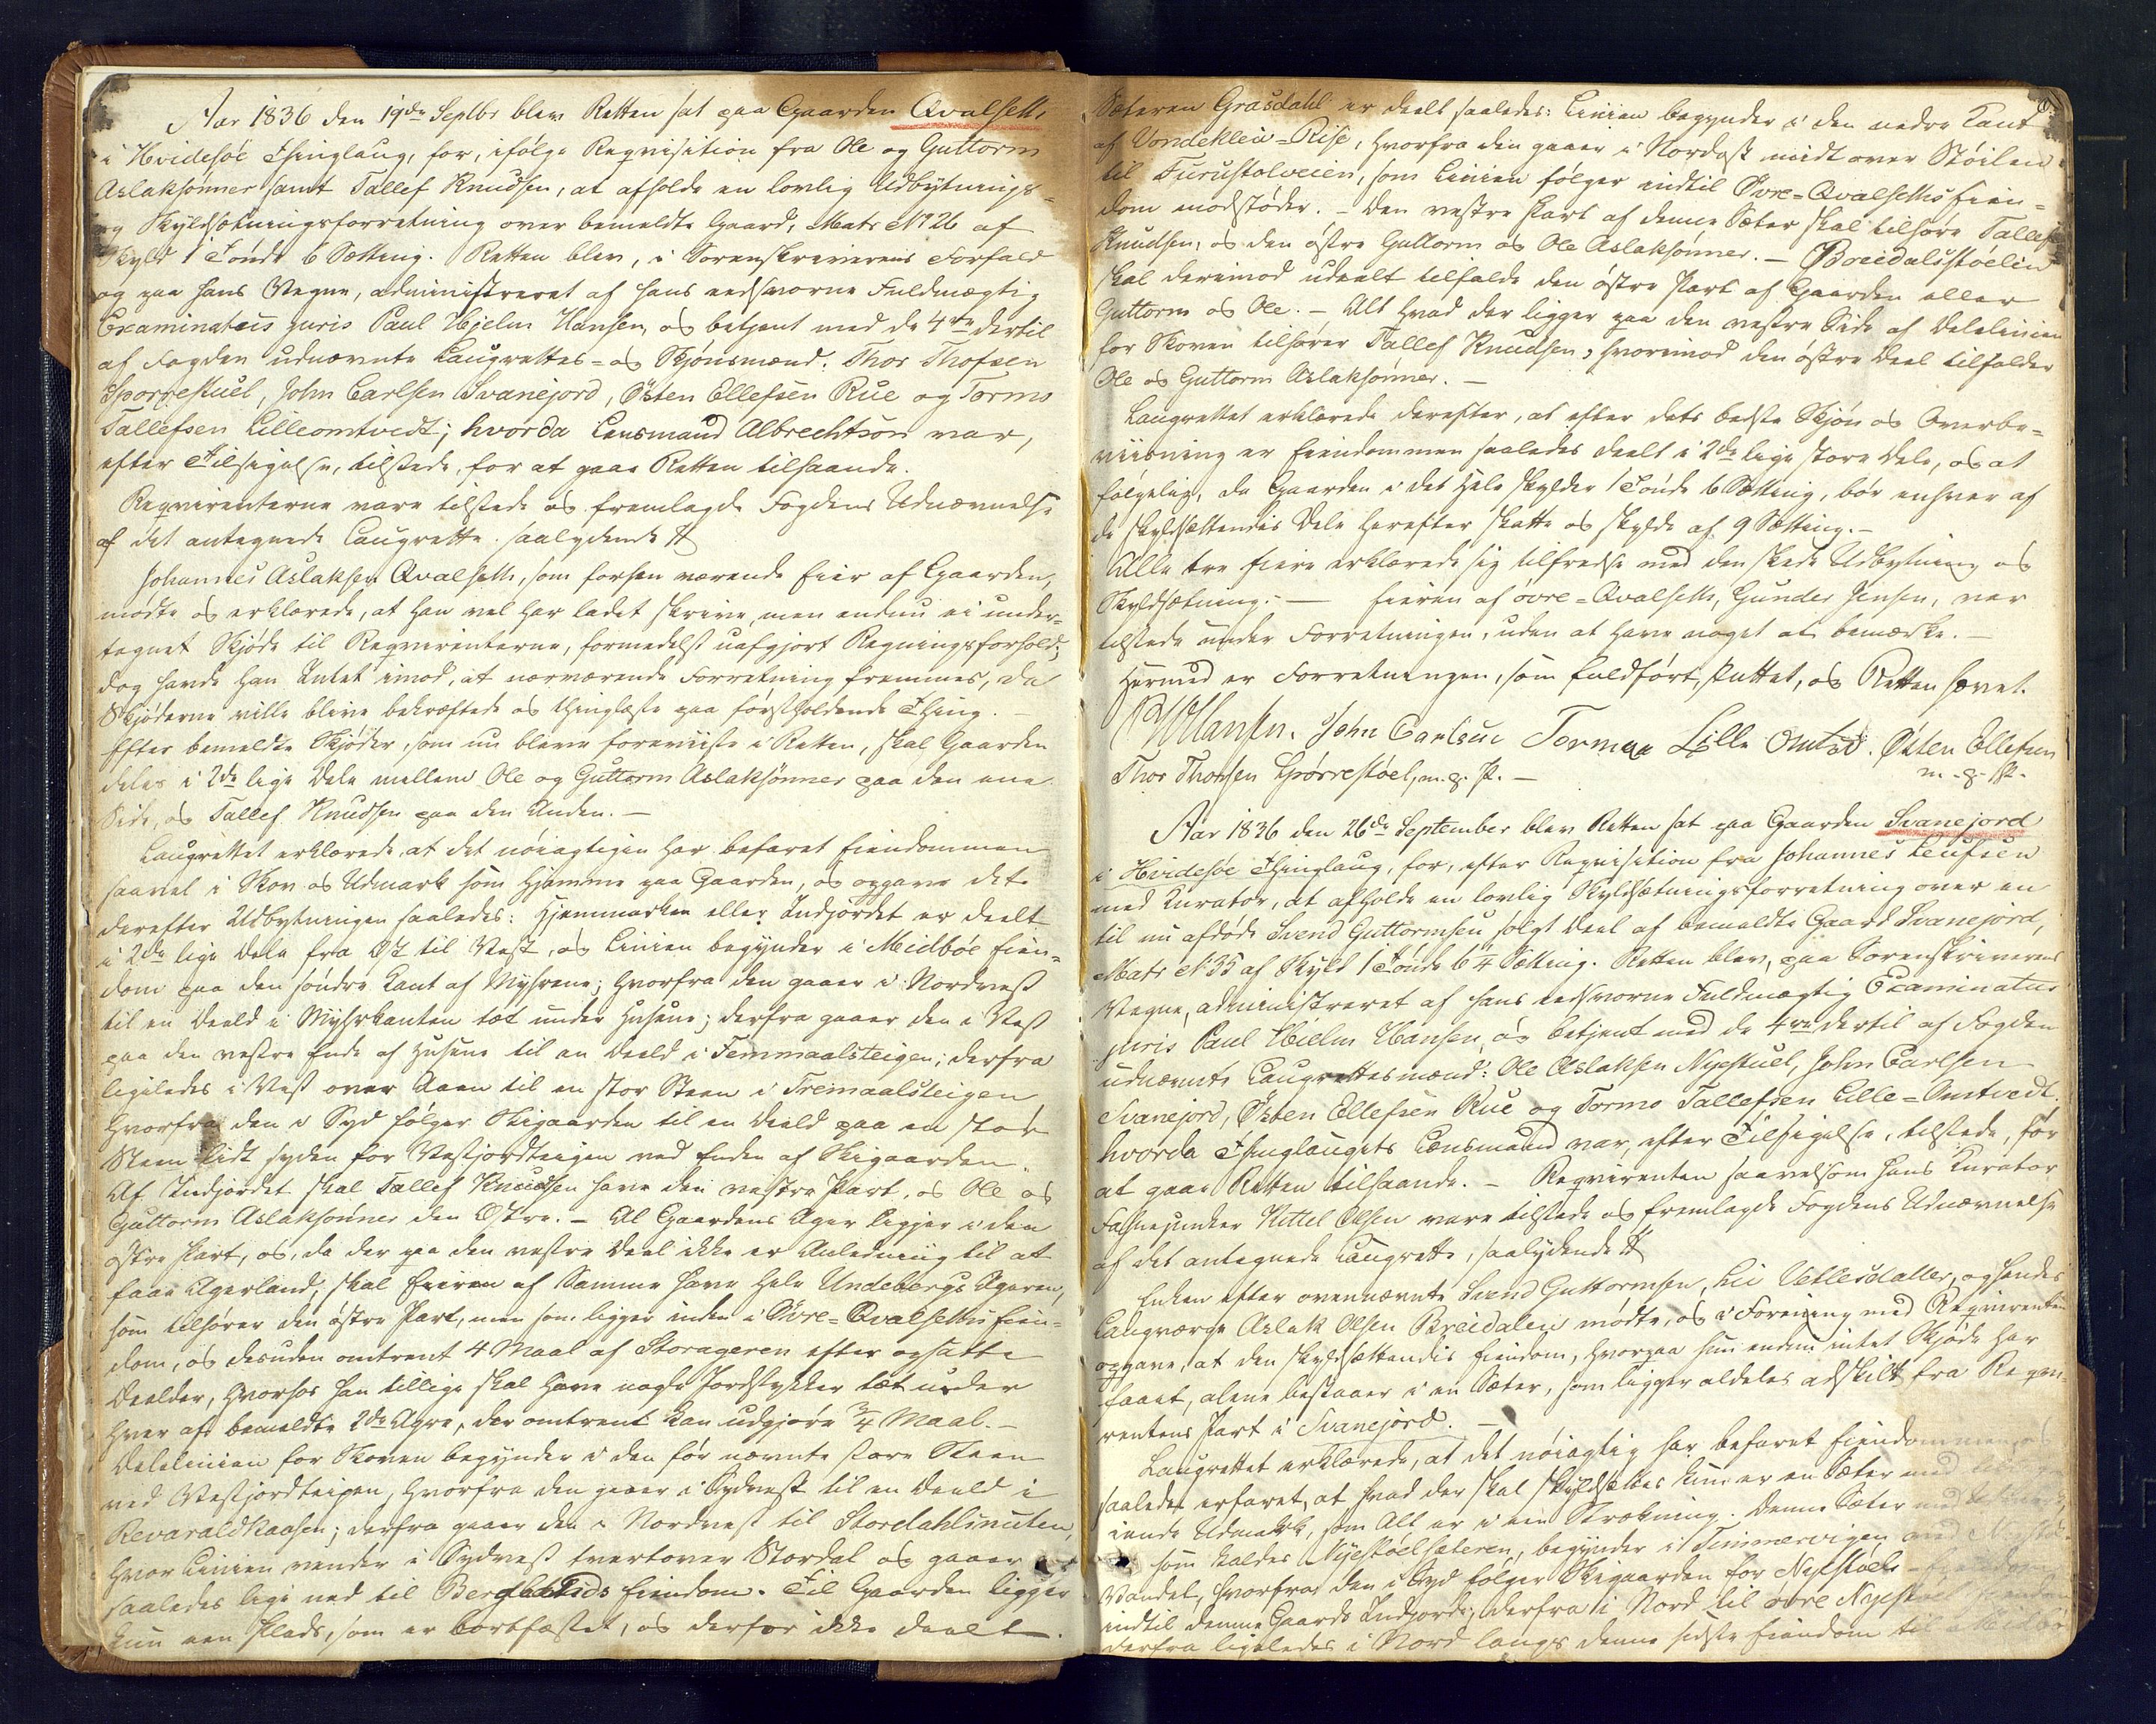 Aar 1836 den 19de Septbr blev Retten sat paa Gaarden Qvalseth,
i Hvidesøe Thinglaug, for, ifølge Reqvisition fra Ole og Guttorm
Aslaksønner samt Tallef Knudsen, at afholde en lovlig Udbytnings-
og Skyldsætningsforretning over bemeldte Gaard, Matr No 26 af
Skyld 1 Tønde 6 Sætting. Retten blev, i Sorenskriverens Forfald
og paa hans Vegne, administreret af hans eedsvorne Fuldmægtig
Examinatus juris Paul Hjelm Hansen, og betjent med de 4re dertil
af Fogden udnævnte Laugrettes- og Skjønsmænd. Thor Thofsen
Sporrestuel, John Carlsen Svanejord, Østen Ellefsen Rue og Tormo
Tallefsen Lilleomtvedt; hvorda Lensmand Albrechtson var,
efter Tilsigelse, tilstede, for at gaae Retten tilhaande.
Reqvirenterne vare tilstede og fremlagde Fogdens Udnævnelse
af det antegnede Laugrette, saalydende #
Johannes Aslaksen Qvalseth, som forhen værende Eier af Gaarden,
mødte og erklærede, at han vel har ladet skrive, men endnu ei under-
tegnet Skjøde til Reqvirenterne, formedelst uafgjort Regningsforhold;
dog havde han Intet imod, at nærværende Forretning fremmes, da
Skjøderne ville blive bekræftede og thinglæste paa førstholdende Thing. –
Efter bemeldte Skjøder, som nu bleve foreviiste i Retten, skal Gaarden
deles i 2de lige Dele mellem Ole og Guttorm Aslaksønner paa den ene
Side, og Tallef Knudsen paa den Anden. –
Laugrettet erklærede, at det nøiagtigen har befaret Eiendommen
saavel i Skov og Udmark som Hjemme paa Gaarden, og opgave dets
derefter Udbytningen saaledes: Hjemmarken eller Indjordet er deelt
i 2de lige Dele fra Øst til Vest, og Linien begynder i Midbøe Eien-
dom paa den søndre Kant af Myhrene; hvorfra den gaaer i Nordvest
til en Deeld i Myhrkanten tæt under Husene; derfra gaaer den i Vest
paa den vestre Ende af Husene til en Deeld i Femmaalsteigen; derfra
ligeledes i Vest over Aaen til en stor Steen i Tremaalsteigen
hvorfra den i Syd følger Skigaarden til en Deeld paa en stor
Steen lidt synden for Vestjordteigen ved Enden af Skigaarden.
Af Indjordet skal Tallef Knudsen have den vestre Part, og Ole og
Guttorm Aslaksønner den Østre. – Al Gaardens Ager ligger i den
østre Part, og, da der paa den vestre Deel ikke er Anledning til at
faae Agerland, skal Eieren af Samme have hele Undebergs Ageren,
som tilhører den østre Part, men som ligger inden i Øvre-Qvalseths Eien-
dom, og desuden omtrent 4 Maal af Storageren efter opsatte
Deelder, hvorhos han tillige skal have nogle Jordstykker tæt under
hver af bemeldte 2de Agre, der omtrent kan udgjøre 3/4 Maal. –
Delelinien for Skoven begynder i den før nævnte store Steen
ved Vestjordteigen, hvorfra den gaaer i Sydvest til en Deeld i
Revaraldkaasen; derfra gaaer den i Nordvest til Stordahlsnuten,
hvor Linien vender i Sydvest tvertover Stordal og gaaer
saaledes lige ned til Berglands Eiendom. Til Gaarden ligger
kun een Plads, som er bortfæstet, og derfor ikke deelt.
Sæteren Grasdahl er deelt saaledes: Linien begynder i den nedre Kant
af Vondekleiv-Rise, hvorfra den gaaer i Nordost midt over Støilen
til Furustolveien, som Linien følger indtil Øvre-Qvalseths Eien-
dom modstøder. – Den vestre Part af denne Sæter skal tilhøre Tallef
Knudsen, og den østre Guttorm og Ole Aslaksønner. – Breidalsstøelen
skal derimod udeelt tilfalde den østre Part af Gaarden eller
Guttorm og Ole. – Alt hvad der ligger paa den vestre Side af Delelinien
for Skoven tilhører Tallef Knudsen, hvorimod den østre Deel tilfalder
Ole og Guttorm Aslaksønner. –
Laugrettet erklærede derefter, at efter dets bedste Skjøn og Overbe-
viisning er Eiendommen saaledes deelt i 2de lige store Dele, og at
følgelig, da Gaarden i det Hele skylder 1 Tønde 6 Sætting, bør enhver af
de skyldsættendes Dele herefter skatte og skylde af 9 Sætting. –
Alle tre Eiere erklærede sig tilfredse med den skede Udbytning og
Skyldsætning. – Eieren af øvre-Qvalseth, Gunder Jensen, var
tilstede under Forretningen, uden at have noget at bemærke. –
Hermed er Forretningen, som fuldført, sluttet, og Retten hævet.
PHHansen. John Carlsen Tormaa Lille Omtvd. Østen Ellefsen
Thor Thorsen Spørrestøel, m. p. P. – m. p. P.
Aar 1836 den 26de September blev Retten sat paa Gaarden Svanejord
i Hvidesøe Thinglaug, for, efter Reqvisition fra Johannes Leufsen
med Kurator, at afholde en lovlig Skyldsætningsforretning over en
til nu afdøde Svend Guttormsen solgt Deel af bemeldte Gaard Svanejord,
Matr No 35 af Skyld 1 Tønde 6 1/4 Sætting. Retten blev, paa Sorenskriverens
Vegne, administreret af hans eedsvorne Fuldmægtig Examinatus
juris Paul Hielm Hansen, og betjent med de 4re dertil af Fogden
udnævnte Laugrettesmænd: Ole Aslaksen Nyestuel, John Carlsen
Svanejord, Østen Ellefsen Rue og Tormo Tallefsen Lille-Omtvedt.
hvorda Thinglaugets Lensmand var, efter Tilsigelse, tilstede, for
at gaae Retten tilhaande. – Reqvirenten saavelsom hans Kurator
Fahnejunker Kittel Olsen vare tilstede og fremlagde Fogdens Udnævnelse
af det antegnede Laugrette, saalydende #
Enken efter ovennævnte Svend Guttormsen, Liv Vetlesdatter, og hendes
Laugværge Aslak Olsen Breidalen mødte, og i Forening med Reqvirenten
opgave, at den skyldsættendes Eiendom, hvorpaa hun endnu intet Skjøde har
faaet, alene bestaaer i en Sæter, som ligger aldeles adskilt fra Reqvi-
rentens Part i Svanejord. –
Laugrettet erklærede, at det nøiagtig har befaret Eiendommen og
saaledes erfaret, at hvad der skal skyldsættes kun er en Sæter med
iende Udmark, som Alt er i een Strækning. Denne Sæter med
som kaldes Nyestøelsæteren, begynder i Timmervigen ved
Vandet, hvorfra den i Syd følger Skigaarden for Nyestøels-
indtil denne Gaards Indjorde; derfra i Nord til øvre Nyestøel
derfra ligeledes i Nord langs denne sidste Eiendom til